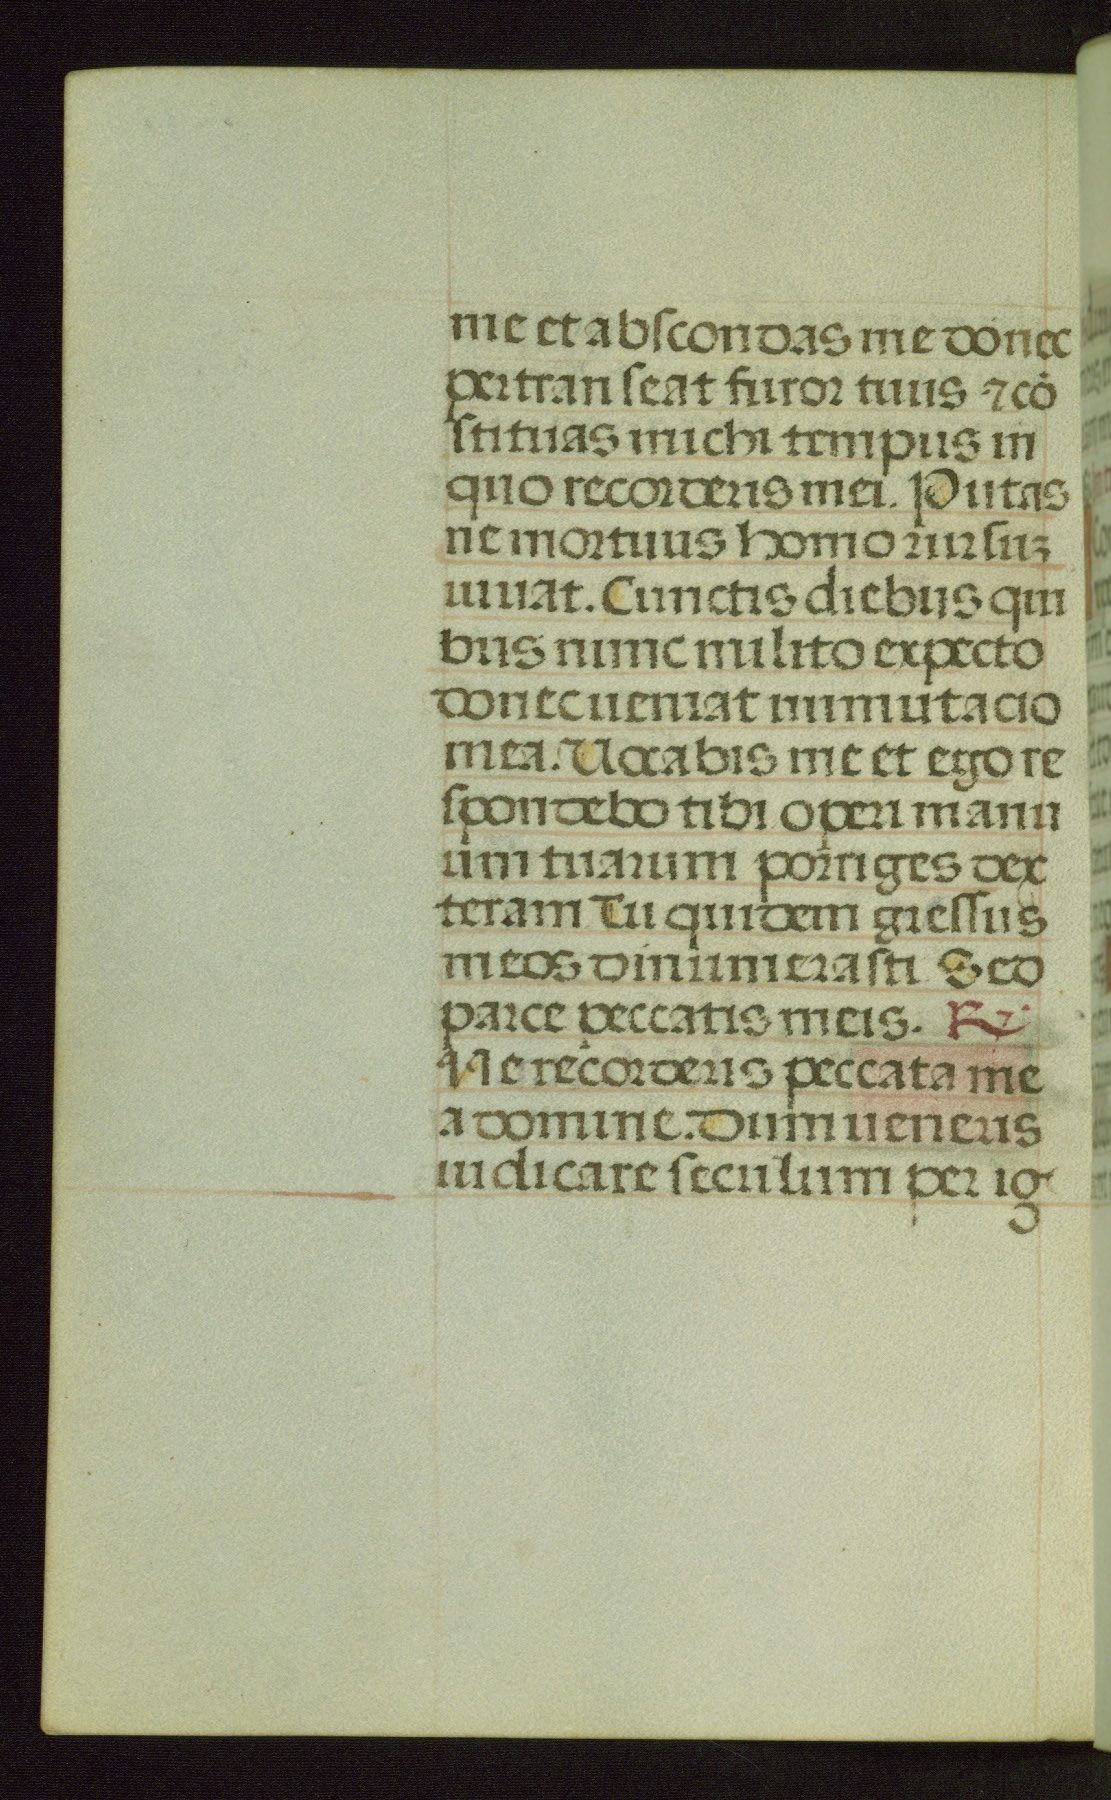 me et abscondas me donec
pertranseat furor tuus ⁊ cō
stituas michi tempus in
quo recorderis mei. Putas
ne mortuus homo rursuꝫ
uiuat. Cunctis diebus qui
bus nunc milito expecto
donec ueniat inmutacio
mea. Uocabis me et ego re
spondebo tibi operi manu
um tuarum porriges dex
teram Tu quidem gressus
meos dinumerasti Sed
parce peccatis meis. R⁊
Ne recorderis peccata me
a domine. Dum ueneris
iudicare seculum per ig